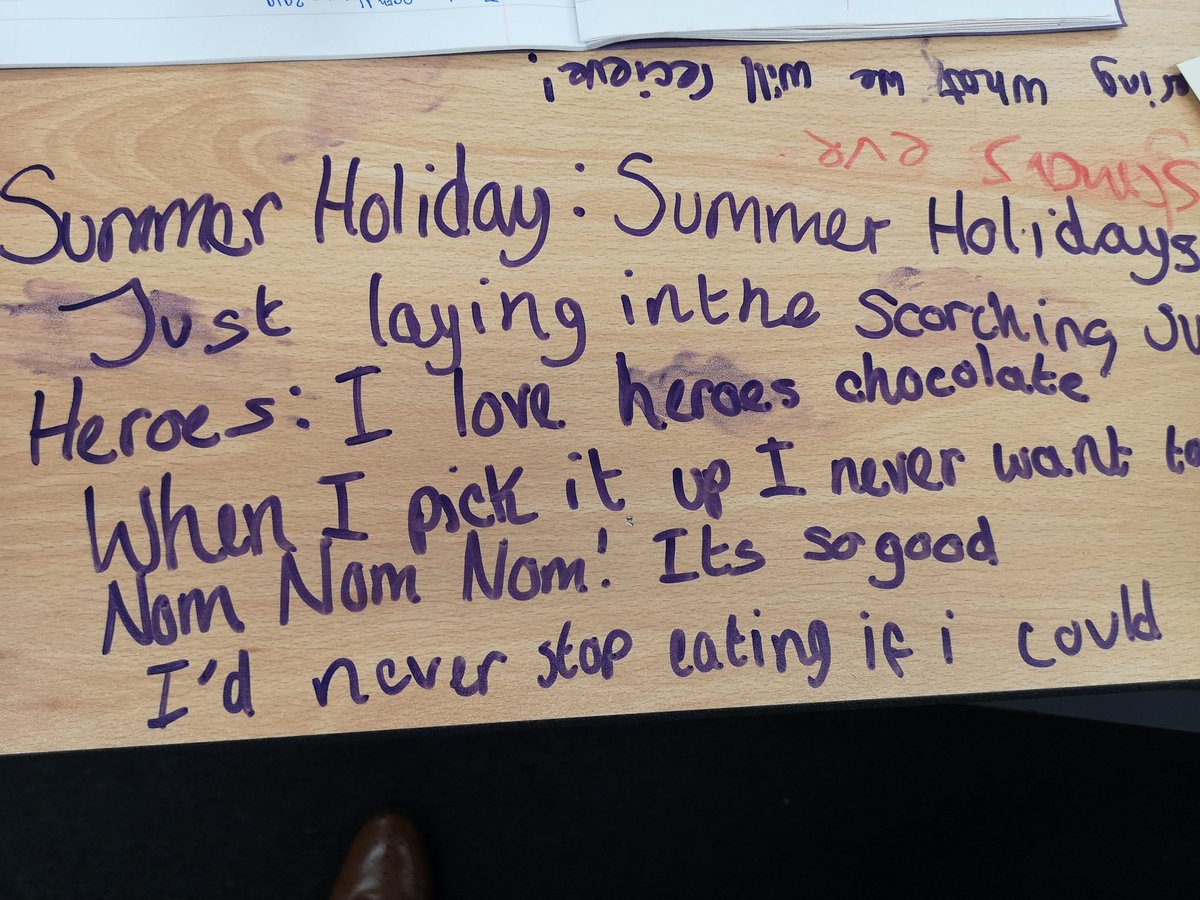 what we will recieve!
eve
Summer Holiday: Summer Holidays
Just laying in the scorching
Heroes: I love heroes chocolate
When I pick it up I never want to
Nom Nom Nom! Its so good
I'd never stop eating if i could